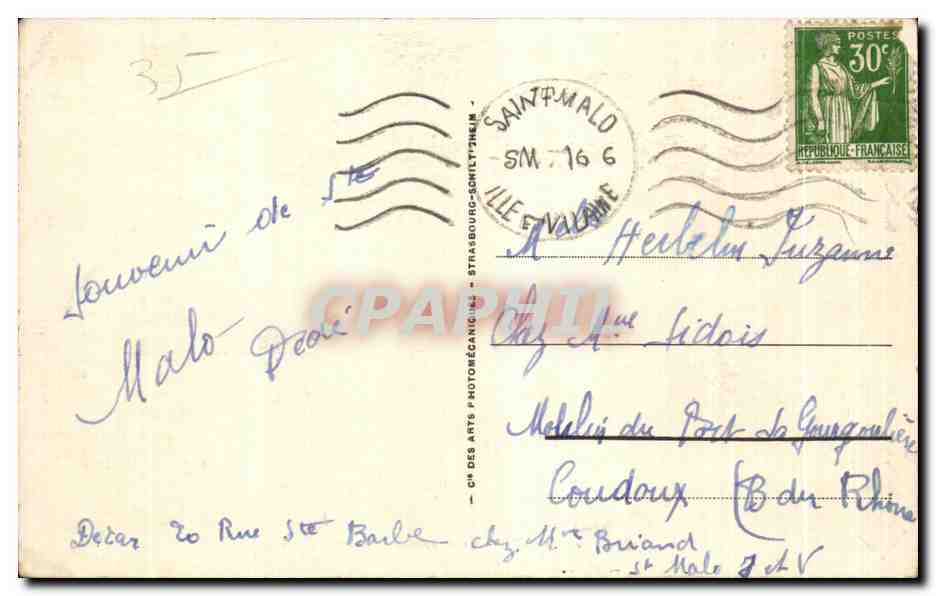 35
SAINT-MALO
SM. 16 6
ILLE ET VILAINE
POSTES
30c
RÉPUBLIQUE-FRANÇAISE
Souvenir de Ste
Malo Dédé
Suzanne
Chez Mme Sidois
Moulin du Pont
Coudoux (B du Rhône
20 Rue Ste Barbe chez Mme Briand
St Malo I et V
— Cie DES ARTS PHOTOMÉCANIQUES - STRASBOURG-SCHILTIGHEIM -
CPAPHIL